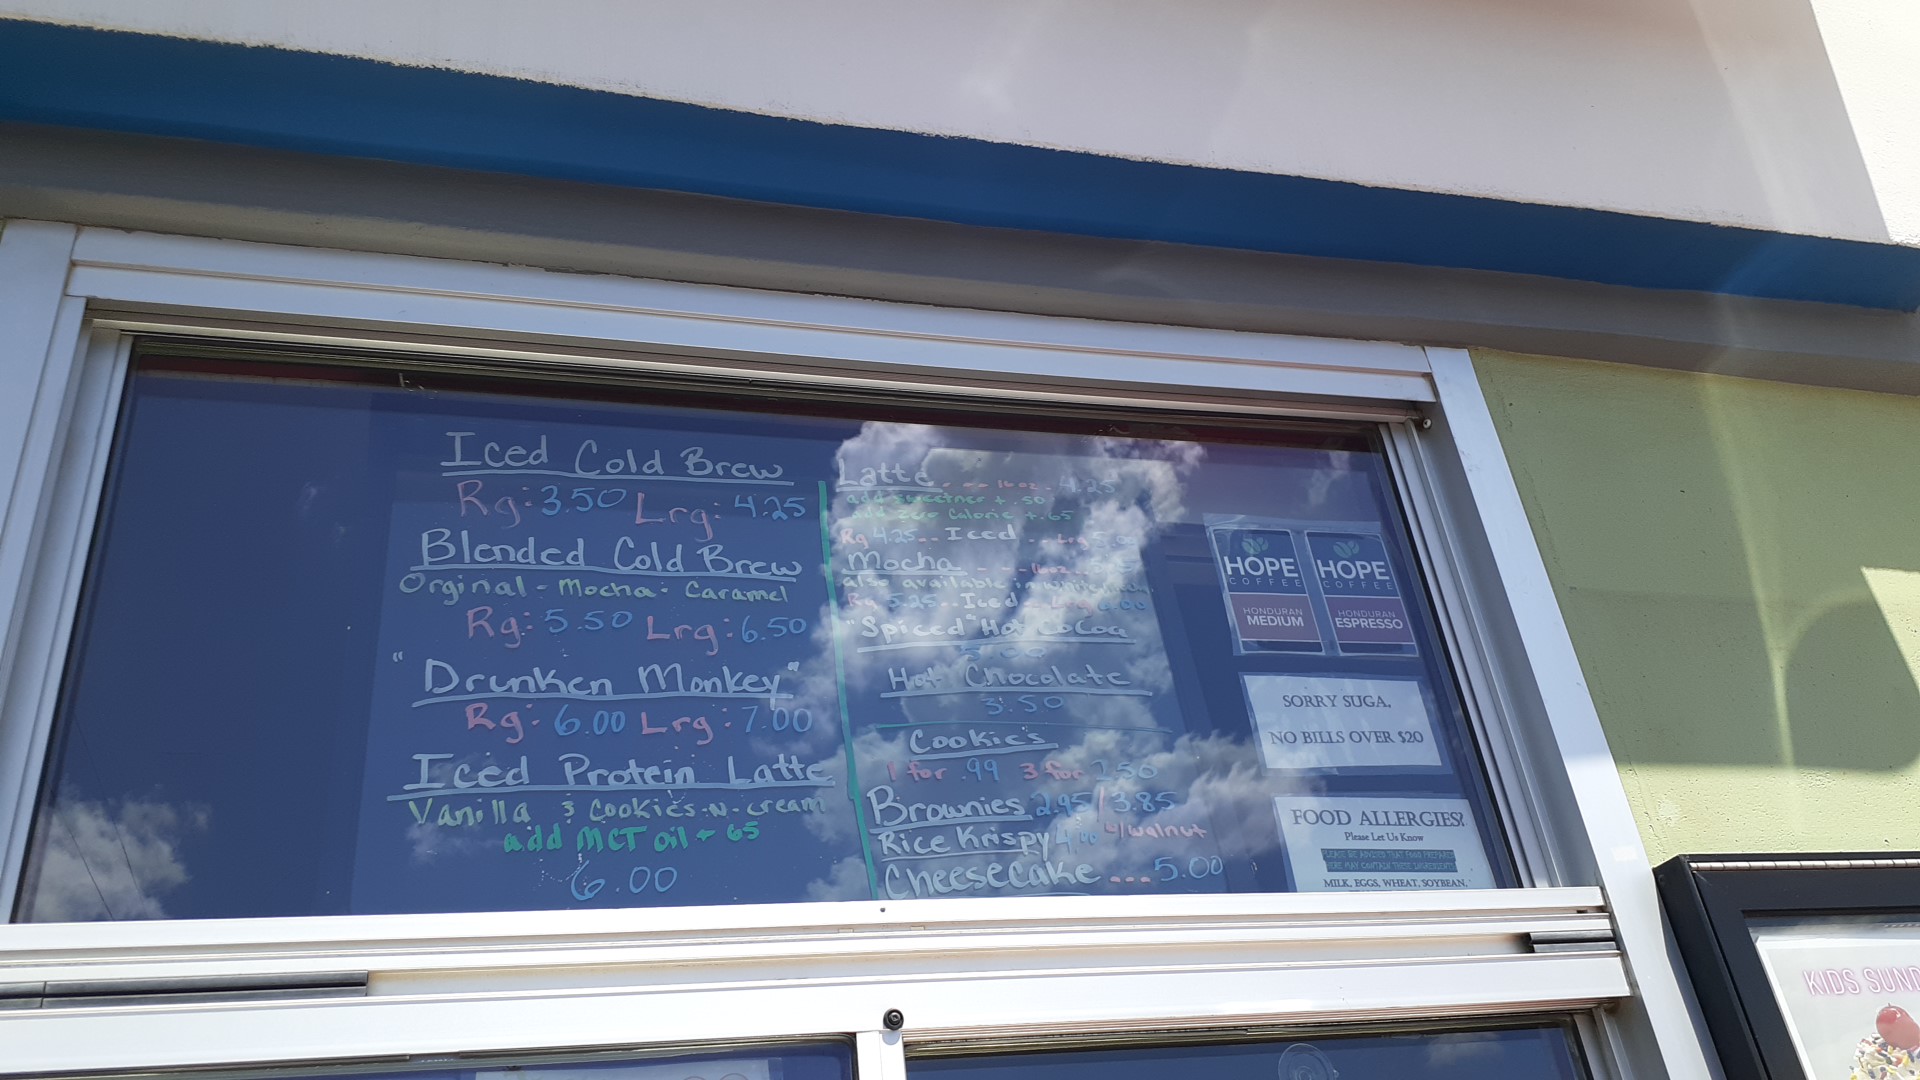 Iced Cold Brew
Rg: 3.50 Lrg: 4.25
Blended Cold Brew
Orginal - Mocha - Caramel
Rg: 5.50 Lrg: 6.50
"Drunken Monkey"
Rg: 6.00 Lrg: 7.00
Iced Protein Latte
Vanilla & Cookies-N-Cream
add MCT oil + 65
6.00
Latte ... 16oz. 4.25
add sweetner + .50
add zero Calorie +.65
Rg 4.25.. Iced .. Lrg 5.00
Mocha ... 16oz.
also available in white
Rg 5.25.. Iced .. Lrg 6.00
"Spiced" Hot Cocoa
Hot Chocolate
3.50
Cookie's
1 for .99 3 for 2.50
Brownies 2.95/3.85
w/walnut
Rice Krispy
Cheesecake ... 5.00
HOPE
COFFEE
HONDURAN
MEDIUM
HOPE
COFFEE
HONDURAN
ESPRESSO
SORRY SUGA,
NO BILLS OVER $20
FOOD ALLERGIES?
Please Let Us Know
PLEASE BE ADVISED THAT FOOD PREPARED
HERE MAY CONTAIN THESE INGREDIENTS
MILK, EGGS, WHEAT, SOYBEAN,
KIDS SUND